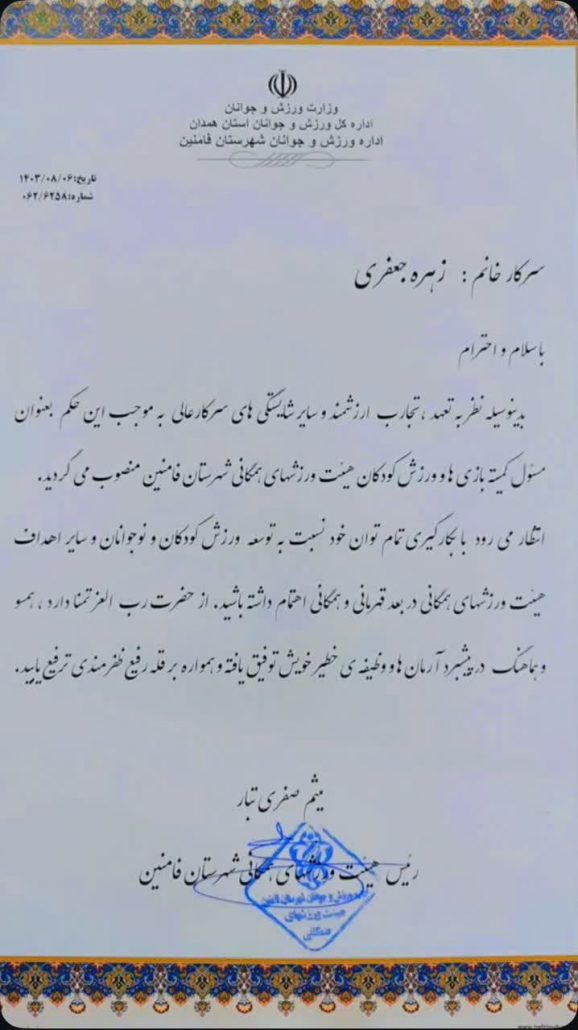 وزارت ورزش و جوانان
اداره کل ورزش و جوانان استان همدان
اداره ورزش و جوانان شهرستان فامنین
تاریخ:۱۴۰۳/۰۸/۰۶
شماره:۰۶۲/۶۲۵۸
سرکار خانم : زهره جعفری
با سلام و احترام
بدینوسیله نظر به تعهد ، تجارب ارزشمند و سایر شایستگی های سرکارعالی به موجب این حکم بعنوان
مسئول کمیته بازی ها و ورزش کودکان هیئت ورزشهای همگانی شهرستان فامنین منصوب می گردید.
انتظار می رود با بکارگیری تمام توان خود نسبت به توسعه ورزش کودکان و نوجوانان و سایر اهداف
هیئت ورزشهای همگانی در بعد قهرمانی و همگانی اهتمام داشته باشید. از حضرت رب العزتمنا دارد ، همسو
و هماهنگ در پیشبرد آرمان ها و وظیفه ی خطیر خویش توفیق یافته و همواره بر قله رفیع ظفرمندی ترفیع یابید.
میثم صفری تبار
رئیس هیئت ورزشهای همگانی شهرستان فامنین
ورزش و جوانان شهرستان فامنین
هیئت ورزشهای
همگانی